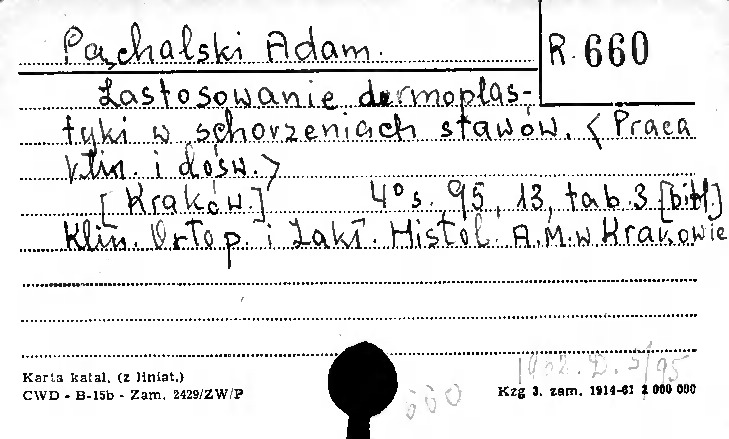 Pąchalski Adam.
R. 660
Zastosowanie dermoplas-
tyki w schorzeniach stawów. <Praca
klin. i dośw.>
[Kraków.] 4° s. 95, 13, tab. 3 [bibl.]
Klin. Ortop. i Zakł. Histol. A.M. w Krakowie
Karta katal. (z liniat.)
CWD - B-15b - Zam. 2429/ZW/P
660
Kzg 3. zam. 1914-61 2 000 000